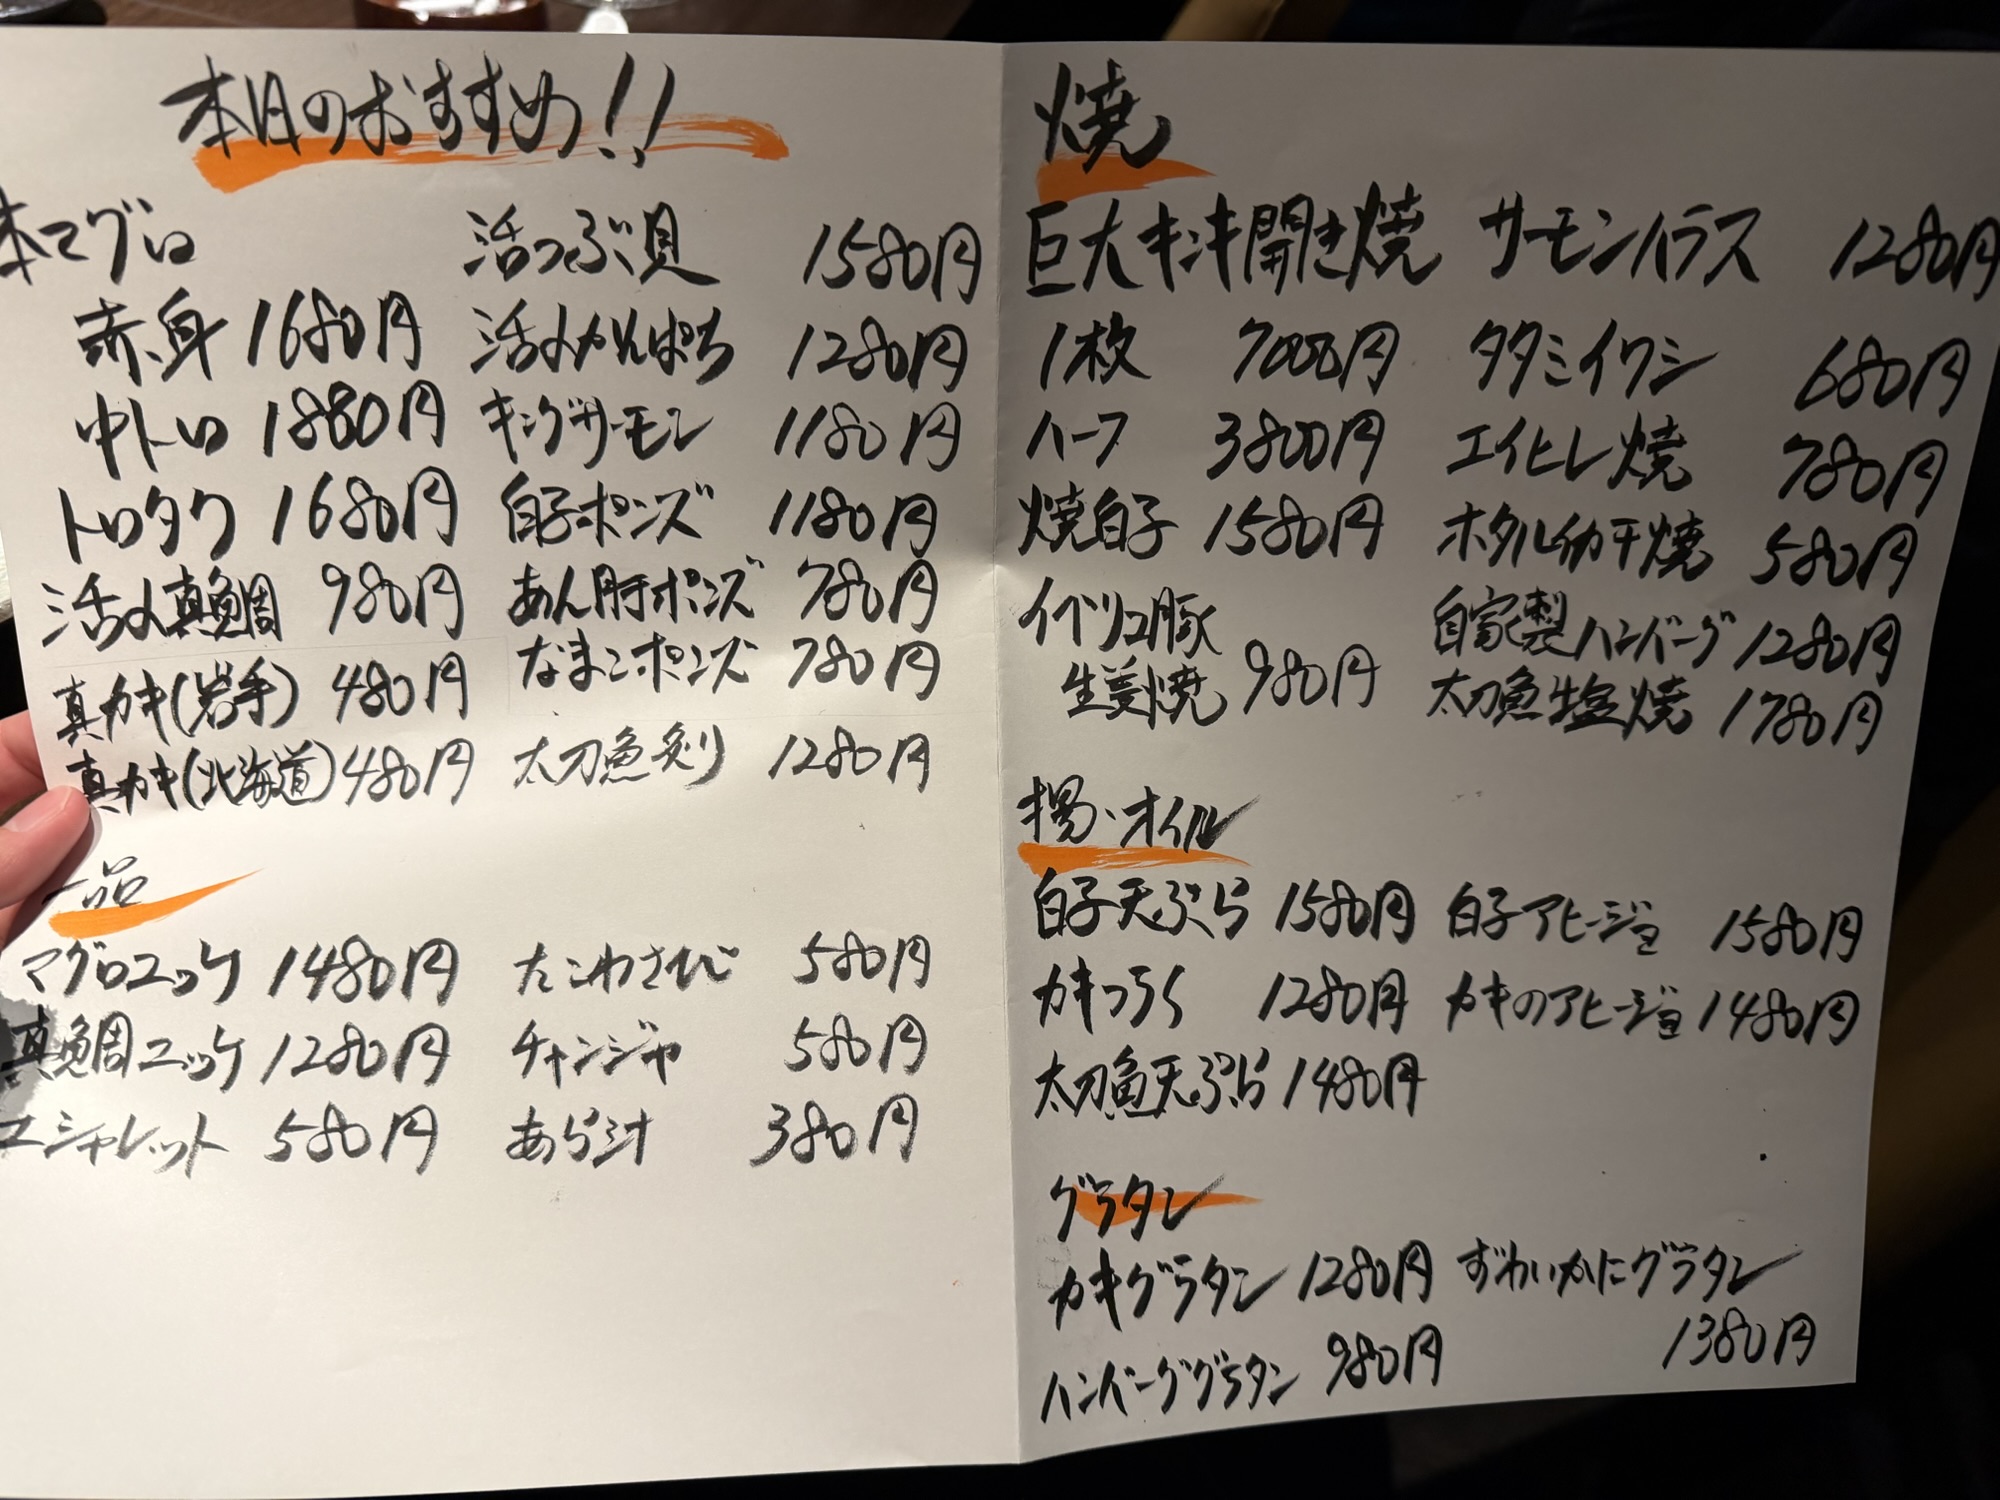 本日のおすすめ!!
本マグロ
赤身 1680円
中トロ 1880円
トロタク 1680円
活〆真鯛 980円
真カキ(岩手) 480円
真カキ(北海道) 480円
活つぶ貝 1580円
活〆かんぱち 1280円
キングサーモン 1180円
白子ポンズ 1180円
あん肝ポンズ 780円
なまこポンズ 780円
太刀魚炙り 1280円
一品
マグロユッケ 1480円
真鯛ユッケ 1280円
エシャレット 580円
たこわさび 580円
チャンジャ 580円
あら汁 380円
焼
巨大キンキ開き焼
1枚 7000円
ハーフ 3800円
焼白子 1580円
イベリコ豚
生姜焼 980円
サーモンハラス 1280円
タタミイワシ 680円
エイヒレ焼 780円
ホタルイカ干焼 580円
自家製ハンバーグ 1280円
太刀魚塩焼 1780円
揚・オイル
白子天ぷら 1580円
カキフライ 1280円
太刀魚天ぷら 1480円
白子アヒージョ 1580円
カキのアヒージョ 1480円
グラタン
カキグラタン 1280円
ハンバーググラタン 980円
ずわいかにグラタン
1380円